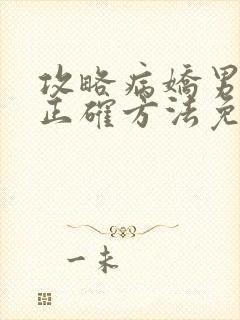 攻略病嬌男
正確方法免
一未